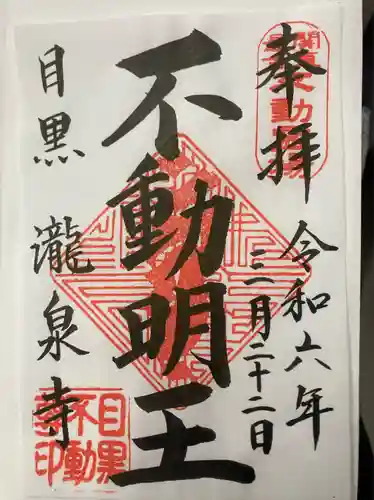 奉拝
令和六年
三月二十二日
不動明王
目黒
瀧泉寺
目黒
不動